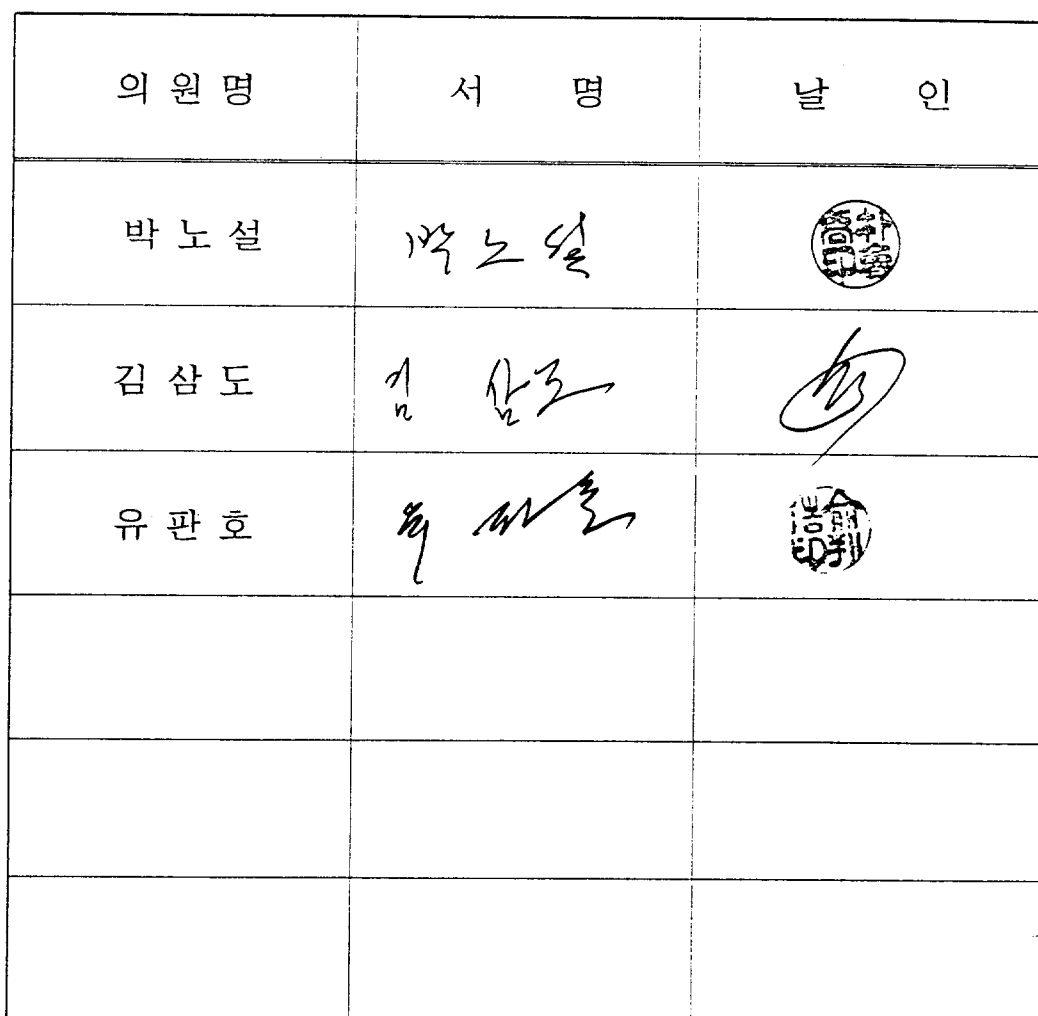 의원명 서 명 날 인
박노설 박노설
김삼도 김 삼도
유판호 유판호